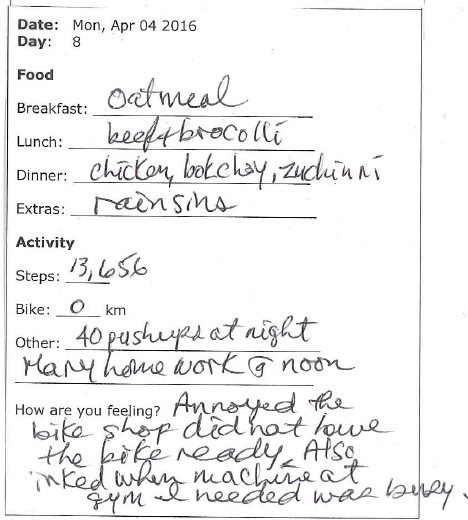 Date: Mon, Apr 04 2016
Day: 8
Food
Breakfast: Oatmeal
Lunch: beef & brocolli
Dinner: chicken, bokchoy, zuchinni
Extras: rainsins
Activity
Steps: 13,656
Bike: 0 km
Other: 40 pushups at night
Many home work @ noon
How are you feeling? Annoyed the
bike shop did not have
the bike ready. Also
inked when machine at
gym I needed was busy.